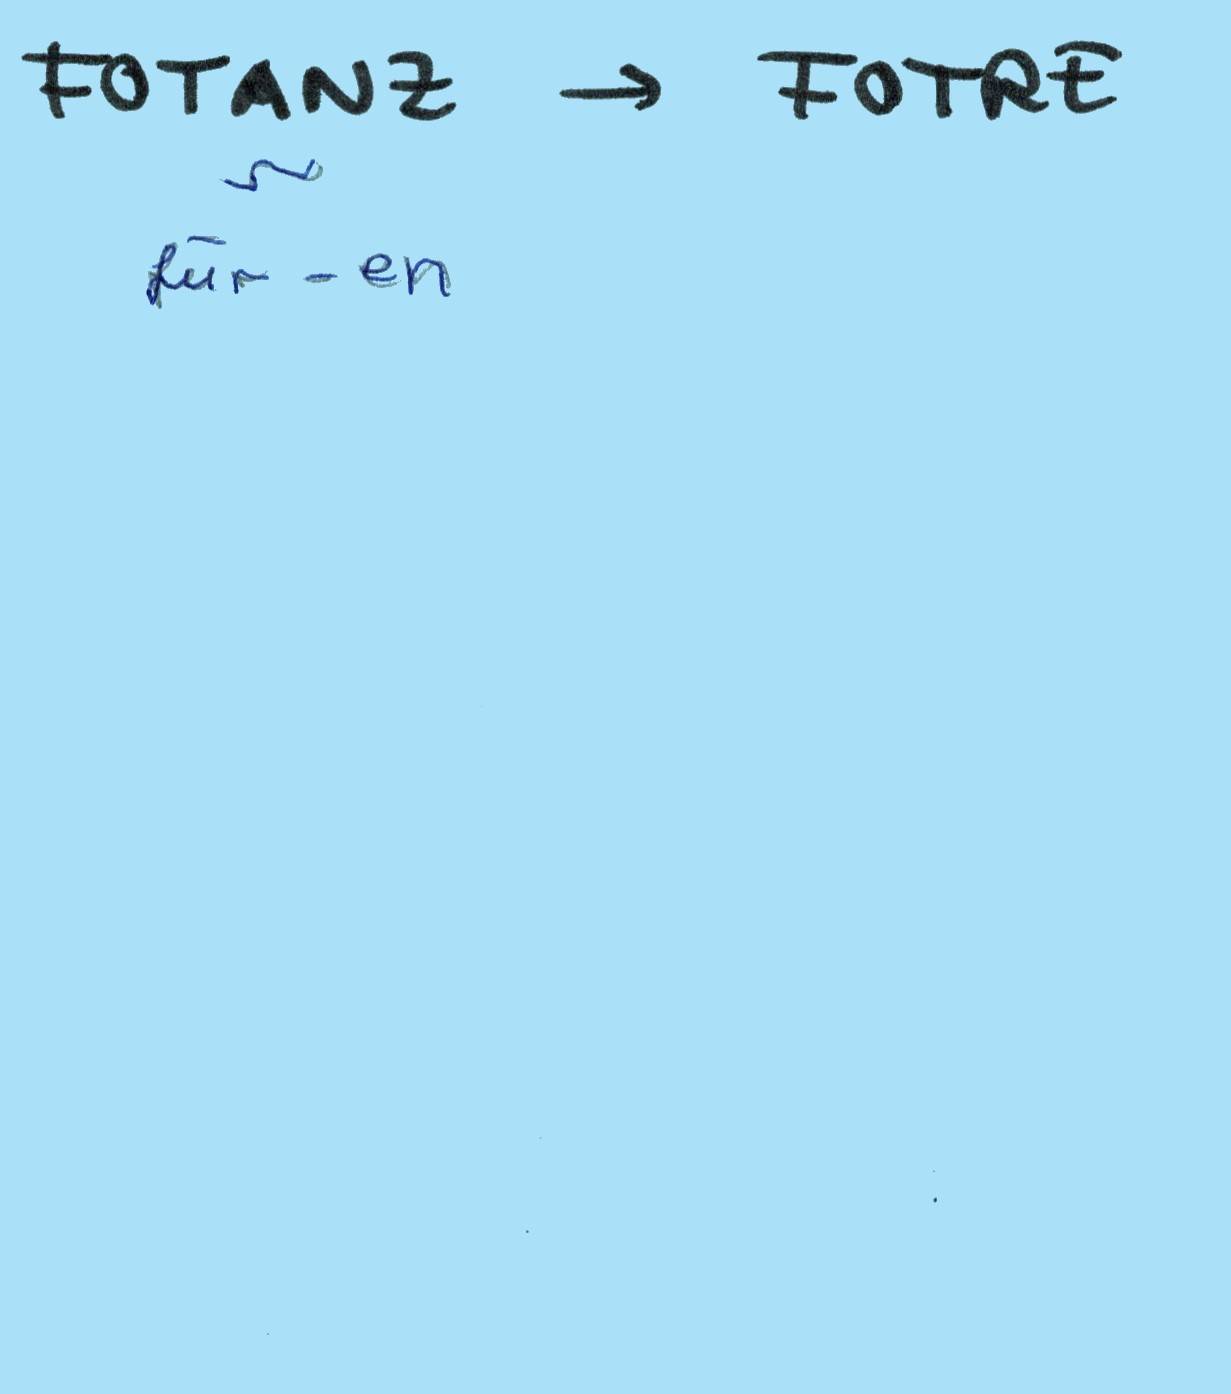 FOTANZ → FOTRE
für - en